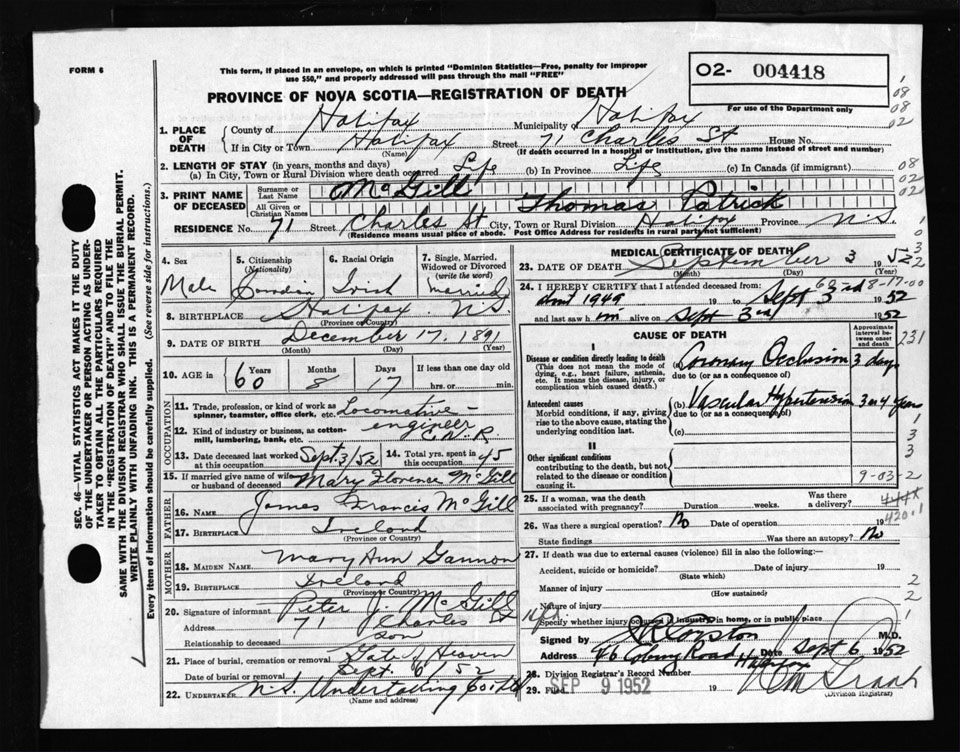 FORM 6
This form, if placed in an envelope, on which is printed "Dominion Statistics—Free, penalty for improper
use $50," and properly addressed will pass through the mail "FREE"
O2- 004418
For use of the Department only
PROVINCE OF NOVA SCOTIA—REGISTRATION OF DEATH
1. PLACE OF DEATH
County of Halifax Municipality of Halifax
If in City or Town Halifax Street 71 Charles St House No.
(Name) (If death occurred in a hospital or institution, give the name instead of street and number)
2. LENGTH OF STAY (in years, months and days)
(a) In City, Town or Rural Division where death occurred Life (b) In Province Life (c) In Canada (if immigrant)
3. PRINT NAME OF DECEASED
Surname or Last Name McGill
All Given or Christian Names Thomas Patrick
RESIDENCE No. 71 Street Charles St City, Town or Rural Division Halifax Province N.S.
(Residence means usual place of abode. Post Office Address for residents in rural parts not sufficient)
4. Sex
Male
5. Citizenship
(Nationality)
6. Racial Origin
Irish
7. Single, Married, Widowed or Divorced
(write the word)
Married
8. BIRTHPLACE Halifax N.S.
(Province or Country)
9. DATE OF BIRTH December 17, 1891
(Month) (Day) (Year)
10. AGE in Years Months Days If less than one day old
60 8 17 hrs. or min.
OCCUPATION
11. Trade, profession, or kind of work as spinner, teamster, office clerk, etc. Locomotive-
engineer
12. Kind of industry or business, as cotton-mill, lumbering, bank, etc. C.N.R
13. Date deceased last worked at this occupation Sept 3/52
14. Total yrs. spent in this occupation 45
15. If married give name of wife or husband of deceased Mary Florence McGill
FATHER
16. Name James Francis McGill
17. Birthplace Ireland
(Province or Country)
MOTHER
18. Maiden Name Mary Ann Gannon
19. Birthplace Ireland
(Province or Country)
20. Signature of informant Peter J. McGill
Address 71 Charles St
Relationship to deceased son
21. Place of burial, cremation or removal Gate of Heaven
Date of burial or removal Sept 6/52
22. Undertaker N.S. Undertaking Co Ltd
(Name and address)
MEDICAL CERTIFICATE OF DEATH
23. DATE OF DEATH September 3 1952
(Month) (Day) (Year)
24. I HEREBY CERTIFY that I attended deceased from:
1949 19 to Sept 3rd 1952
and last saw him alive on Sept 3rd 1952
8-17-00
CAUSE OF DEATH
Approximate interval between onset and death
I
Disease or condition directly leading to death
(This does not mean the mode of dying, e.g., heart failure, asthenia, etc. It means the disease, injury, or complication which caused death.)
Coronary Occlusion 3 days
due to (or as a consequence of)
Antecedent causes
Morbid conditions, if any, giving rise to the above cause, stating the underlying condition last.
(b) Vascular Hypertension 3 or 4 years
due to (or as a consequence of)
(c)
II
Other significant conditions
contributing to the death, but not related to the disease or condition causing it.
9-03-2
25. If a woman, was the death associated with pregnancy? Duration weeks. Was there a delivery?
26. Was there a surgical operation? No Date of operation 19
420.1
State findings Was there an autopsy? No
27. If death was due to external causes (violence) fill in also the following:—
Accident, suicide or homicide? Date of injury 19
(State which)
Manner of injury
(How sustained)
Nature of injury
Specify whether injury occurred in industry, in home, or in public place
Signed by M.D.
Address 46 Coburg Road Halifax Date Sept 6 1952
28. Division Registrar's Record Number
29. Filed SEP 9 1952 19
(Division Registrar)
SEC. 46—VITAL STATISTICS ACT MAKES IT THE DUTY
OF THE UNDERTAKER OR PERSON ACTING AS UNDER-
TAKER TO OBTAIN ALL THE PARTICULARS REQUIRED
IN THE "REGISTRATION OF DEATH" AND TO FILE THE
SAME WITH THE DIVISION REGISTRAR WHO SHALL ISSUE THE BURIAL PERMIT.
WRITE PLAINLY WITH UNFADING INK. THIS IS A PERMANENT RECORD.
Every item of information should be carefully supplied. (See reverse side for instructions.)
1
08
08
02
08
02
02
231